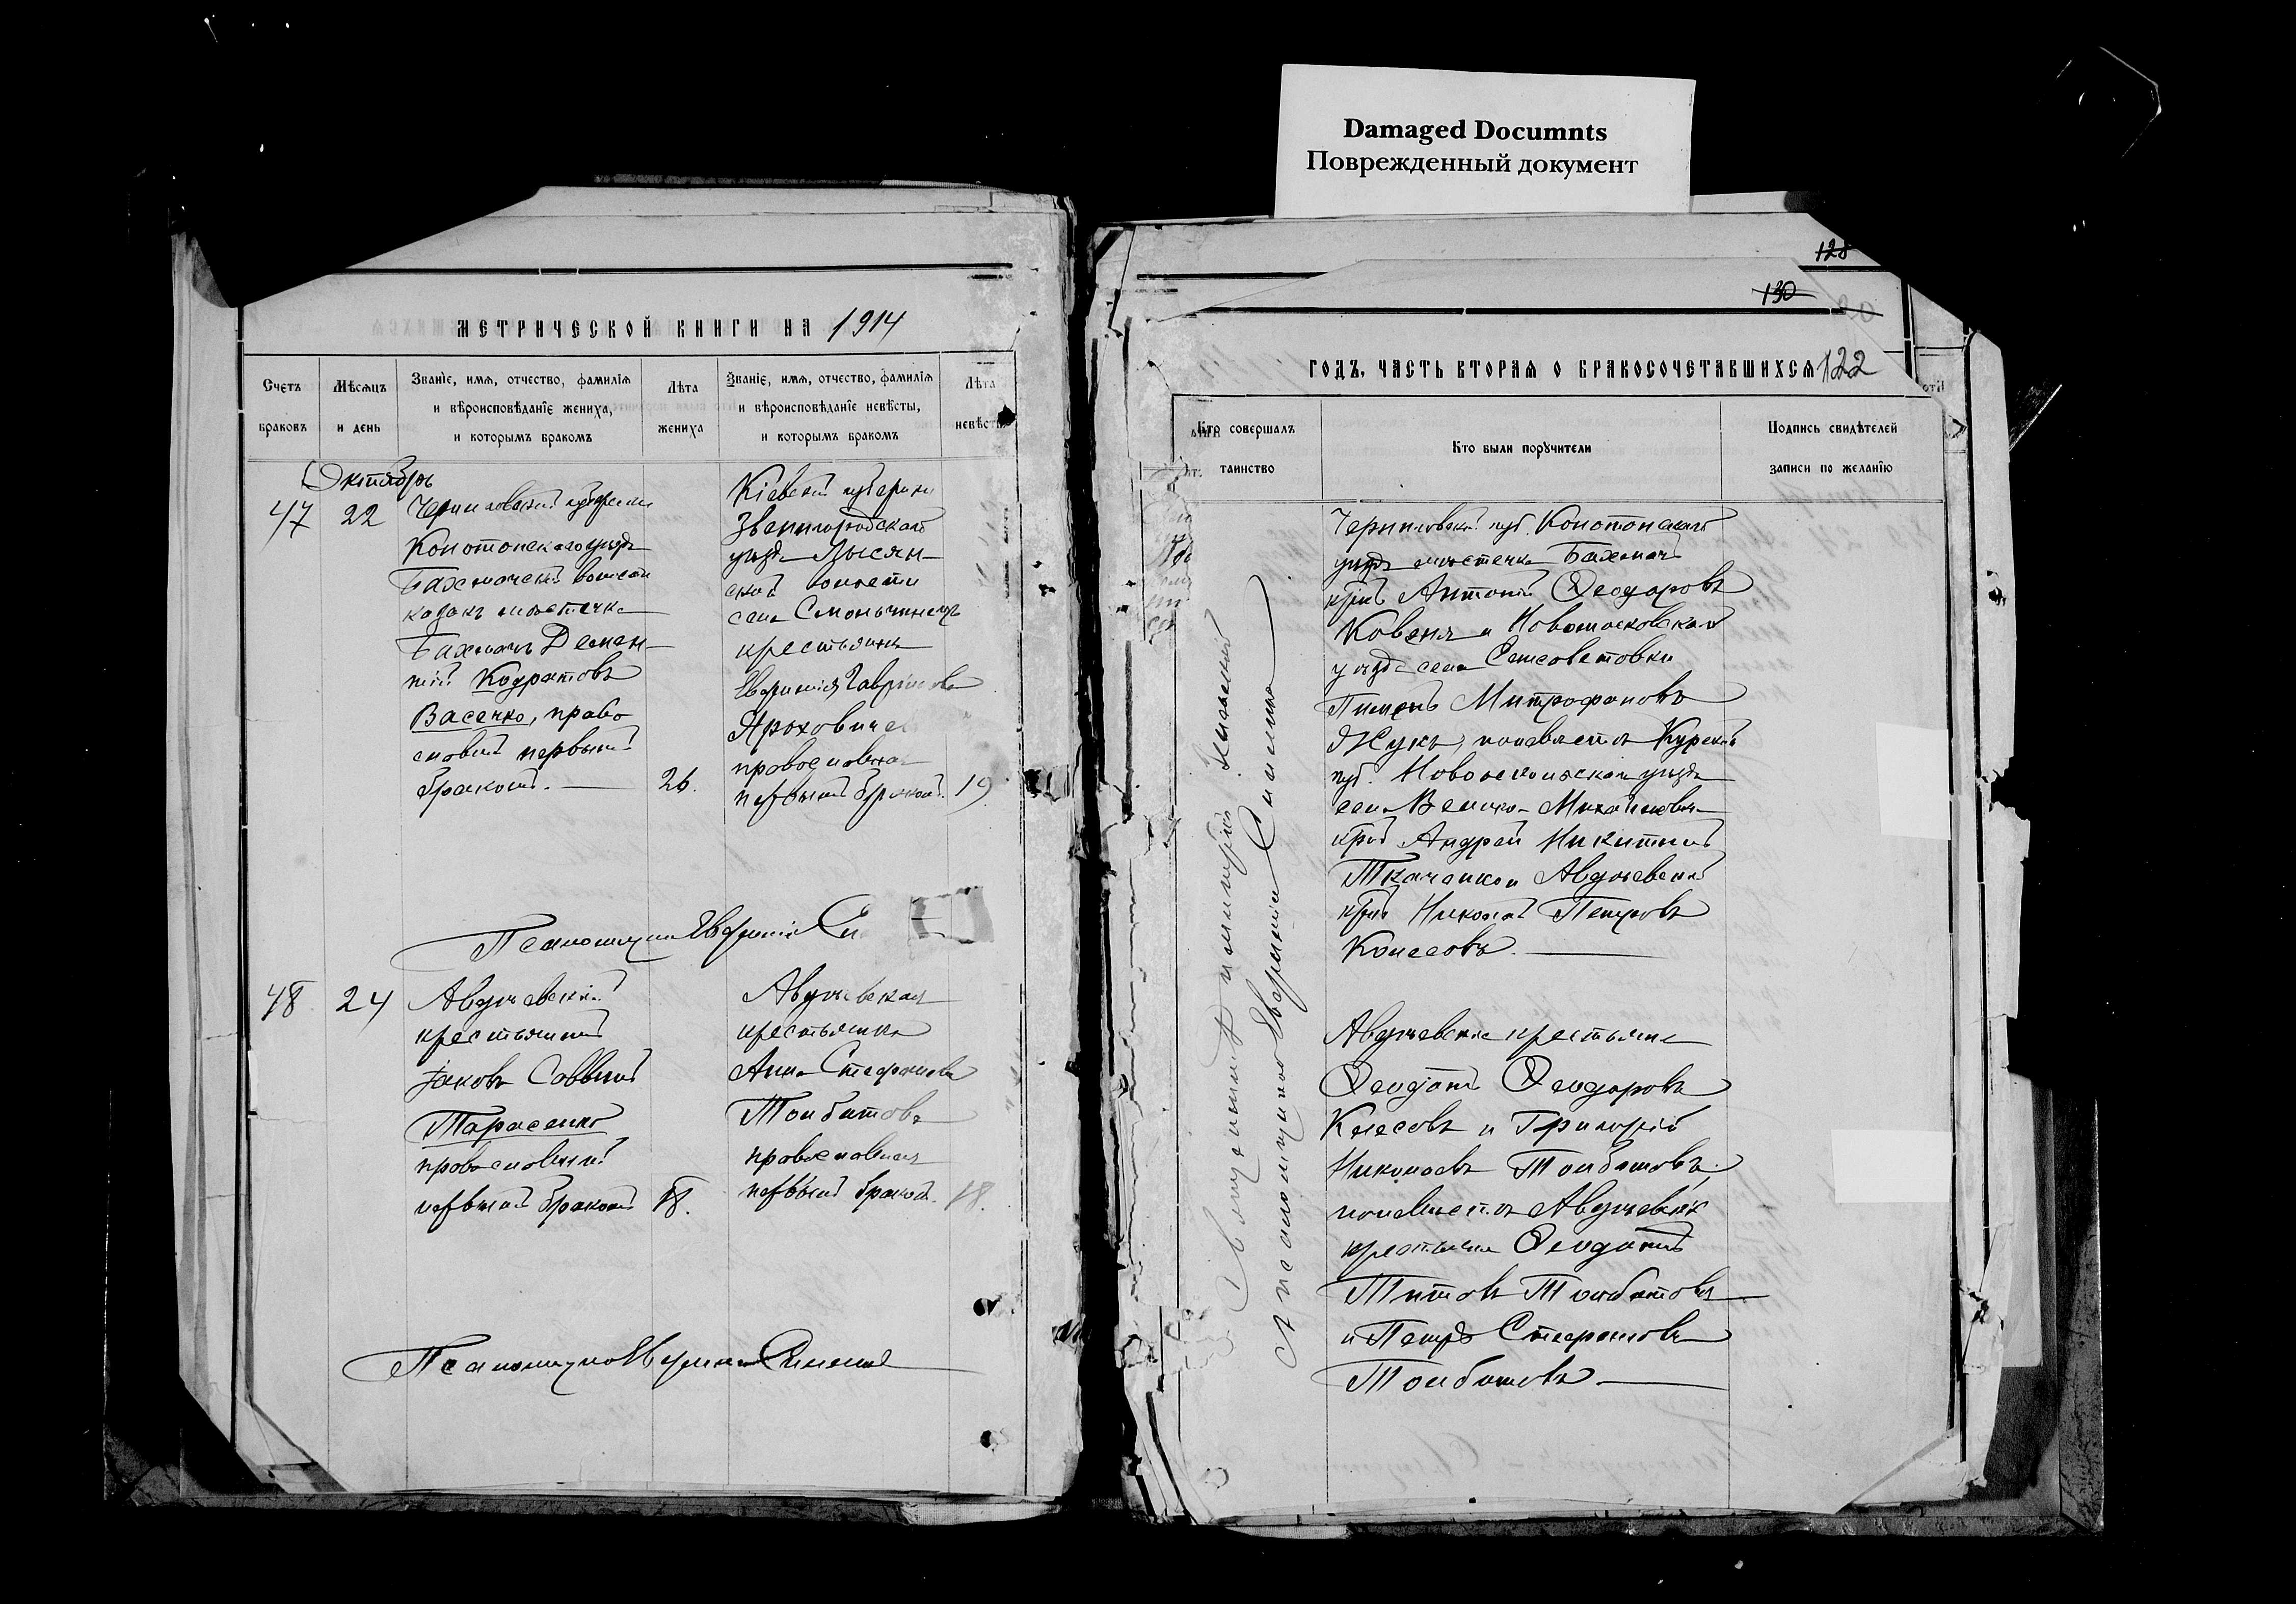 Damaged Documnts
Поврежденный документ
МЕТРИЧЕСКОЙ КНИГИ НА 1914
Счетъ браковъ
Мѣсяцъ и день
Званіе, имя, отчество, фамилія и вѣроисповѣданіе жениха, и которымъ бракомъ
Лѣта жениха
Званіе, имя, отчество, фамилія и вѣроисповѣданіе невѣсты, и которымъ бракомъ
Лѣта невѣст
Октябрь
47
22
Черниговской губерніи
Конотопскаго уѣзда
Бахмачской волости
козакъ мѣстечка
Бахмачъ Демен-
тій Кодратовъ
Васечко, право
славный первымъ
бракомъ.
26.
Кіевской губерніи
Звенигородскаго
уѣзда Лысян-
ской волости
села Смольчинецъ
крестьянка
Евфимія Гаврилова
православная
первымъ бракомъ.
19
Псаломщикъ Евфимій Си
48
24
Авдѣевскій
крестьянинъ
Іаковъ Саввинъ
Тарасенко
православный
первымъ бракомъ
18.
Авдѣевская
крестьянка
Анна Стефанова
Толбатова
православная
первымъ бракомъ.
18.
Псаломщикъ Евфимій
128
130
ГОДЪ, ЧАСТЬ ВТОРАЯ О БРАКОСОЧЕТАВШИХСЯ 122
Кто совершалъ таинство
Кто были поручители
Подпись свидѣтелей записи по желанію
Священникъ Димитрій
с псаломщикомъ Евфиміемъ
Черниговской губ. Конотопскаго
уѣзда мѣстечка Бахмачъ
крнъ Антоній Ѳеодоровъ
Ковеня и Новомосковскаго
уѣзда села Елисоветовки
Пименъ Митрофановъ
Жукъ, по невѣстѣ Курской
губ. Новооскольскаго уѣзда
села Велико-Михайловки
крнъ Андрей Никитинъ
Ткаченко и Авдѣевскій
крнъ Николай Петровъ
Колесовъ.
Авдѣевскіе крестьяне
Ѳеодотъ Ѳеодоровъ
Колесовъ и Григорій
Николаевъ Толбатовъ;
по невѣстѣ Авдѣевскіе
крестьяне Ѳеодотъ
Титовъ Толбатовъ
и Петръ Стефановъ
Толбатовъ.